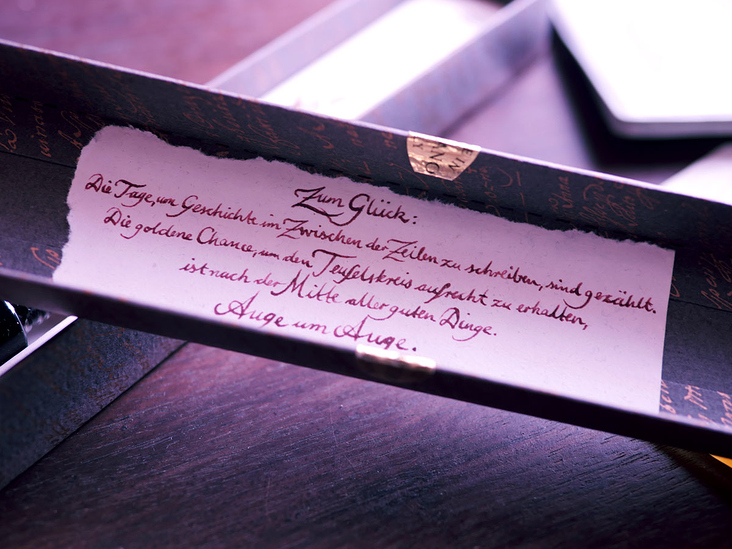 Zum Glück:
Die Tage, um Geschichte im Zwischen der Zeilen zu schreiben, sind gezählt.
Die goldene Chance, um den Teufelskreis aufrecht zu erhalten,
ist nach der Mitte aller guten Dinge.
Auge um Auge.